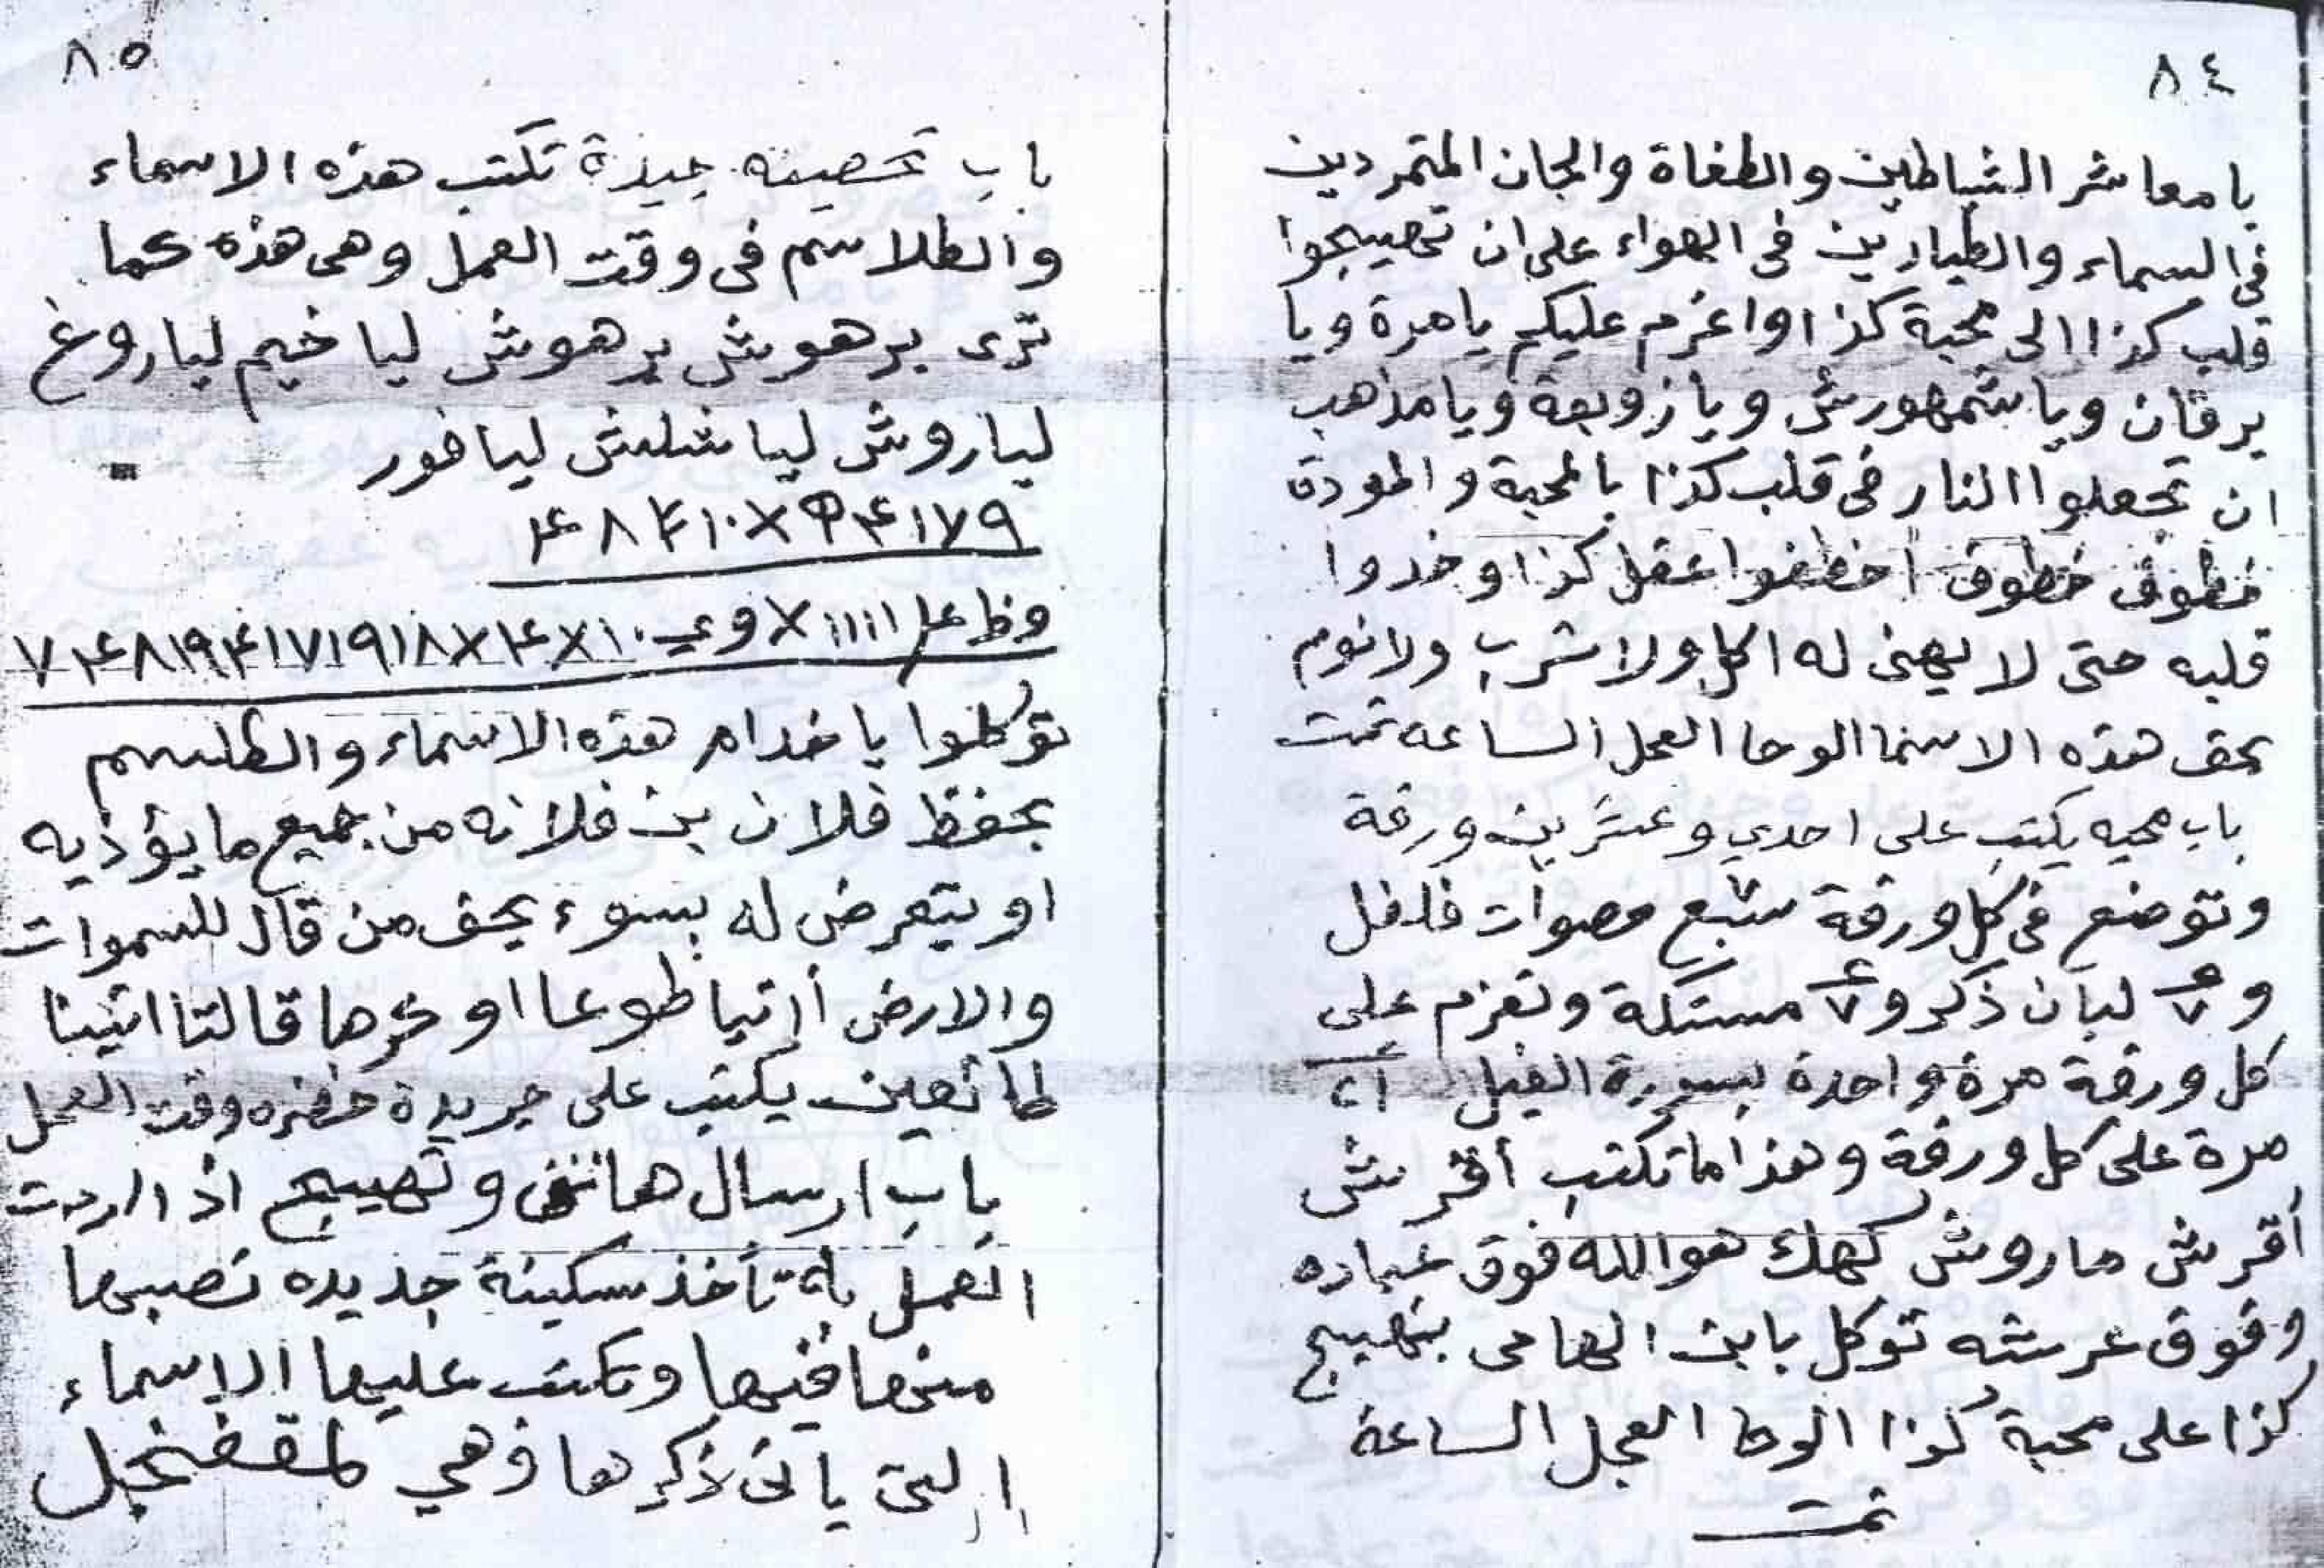 ٨٤
يا معاشر الشياطين والطغاة والجان المتمردين
في السماء والطيارين في الهواء على ان تهيجوا
قلب كذا الى محبة كذا واعزم عليكم يا مرة ويا
برقان ويا شمهورش ويا زوبعة ويا مذهب
ان تجعلوا النار في قلب كذا بالمحبة والمودة
خطوف خطوف اخطفوا عقل كذا وخدوا
قلبه حتى لا يهنى له اكل ولا شرب ولا نوم
بحق هذه الاسما الوحا العجل الساعة تمت
باب محبه يكتب على احدي وعشرين ورقة
وتوضع في كل ورقة سبع حصوات فلفل
و ٧ لبان ذكر و ٧ مستكة وتعزم على
كل ورقة مرة واحدة بسورة الفيل
مرة على كل ورقة وهذا ما تكتب أقرش
أقرش ماروش كهك هو الله فوق عباده
وفوق عرشه توكل يا بن الهامى بتهييج
كذا على محبة كذا الوحا العجل الساعة
تمت
٨٥
باب تحصينه جيدة تكتب هذه الاسماء
والطلاسم فى وقت العمل وهى هذه كما
ترى برهوش برهوش ليا خيم لياروغ
لياروش ليا شلش ليا فور
توكلوا يا خدام هذه الاسماء والطلسم
بحفظ فلان بن فلانه من جميع ما يؤذيه
او يتعرض له بسوء بحق من قال للسموات
والارض أتيا طوعا او كرها قالتا اتينا
طائعين يكتب على جريدة خضره وقت العمل
باب ارسال هاتف وتهييج اذا اردت
العمل به تأخذ سكينة جديده نصبها
منها فيها وتكتب عليها الاسماء
التى ياتى ذكرها وهي لمقفنجل